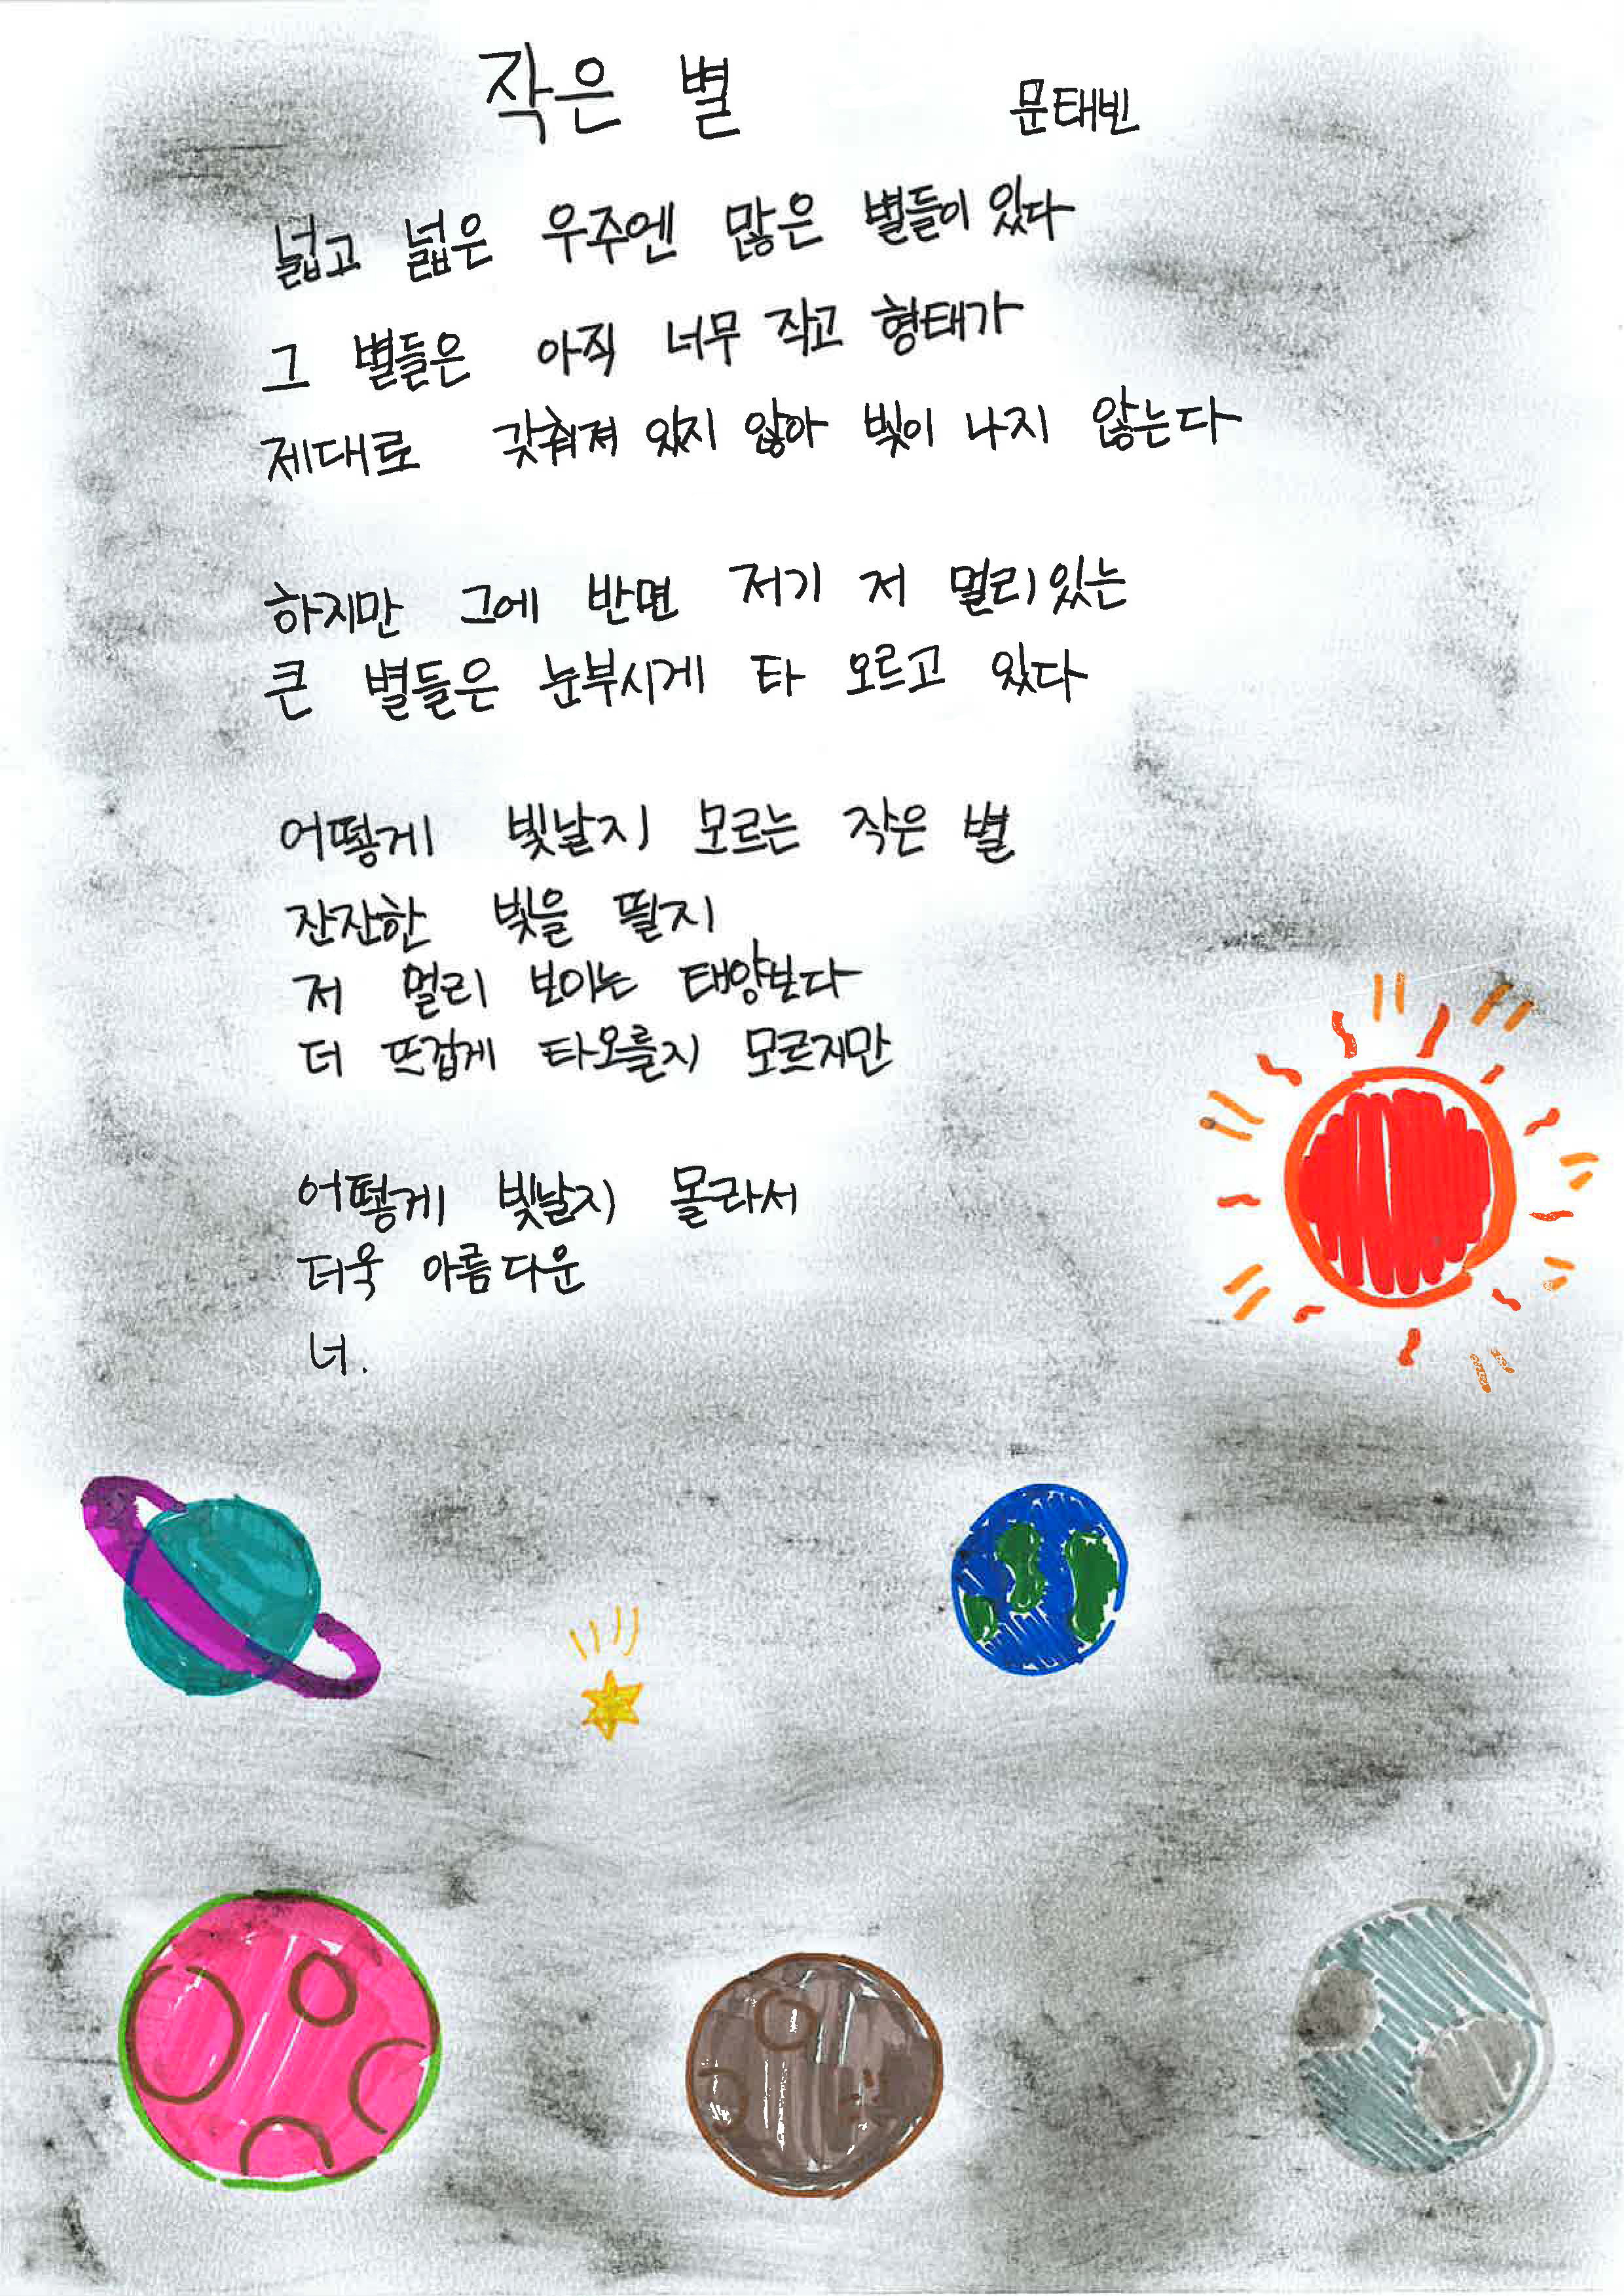 작은 별
문태빈
넓고 넓은 우주엔 많은 별들이 있다
그 별들은 아직 너무 작고 형태가
제대로 갖춰져 있지 않아 빛이 나지 않는다
하지만 그에 반면 저기 저 멀리있는
큰 별들은 눈부시게 타 오르고 있다
어떻게 빛날지 모르는 작은 별
잔잔한 빛을 띌지
저 멀리 보이는 태양보다
더 뜨겁게 타오를지 모르지만
어떻게 빛날지 몰라서
더욱 아름다운
너.